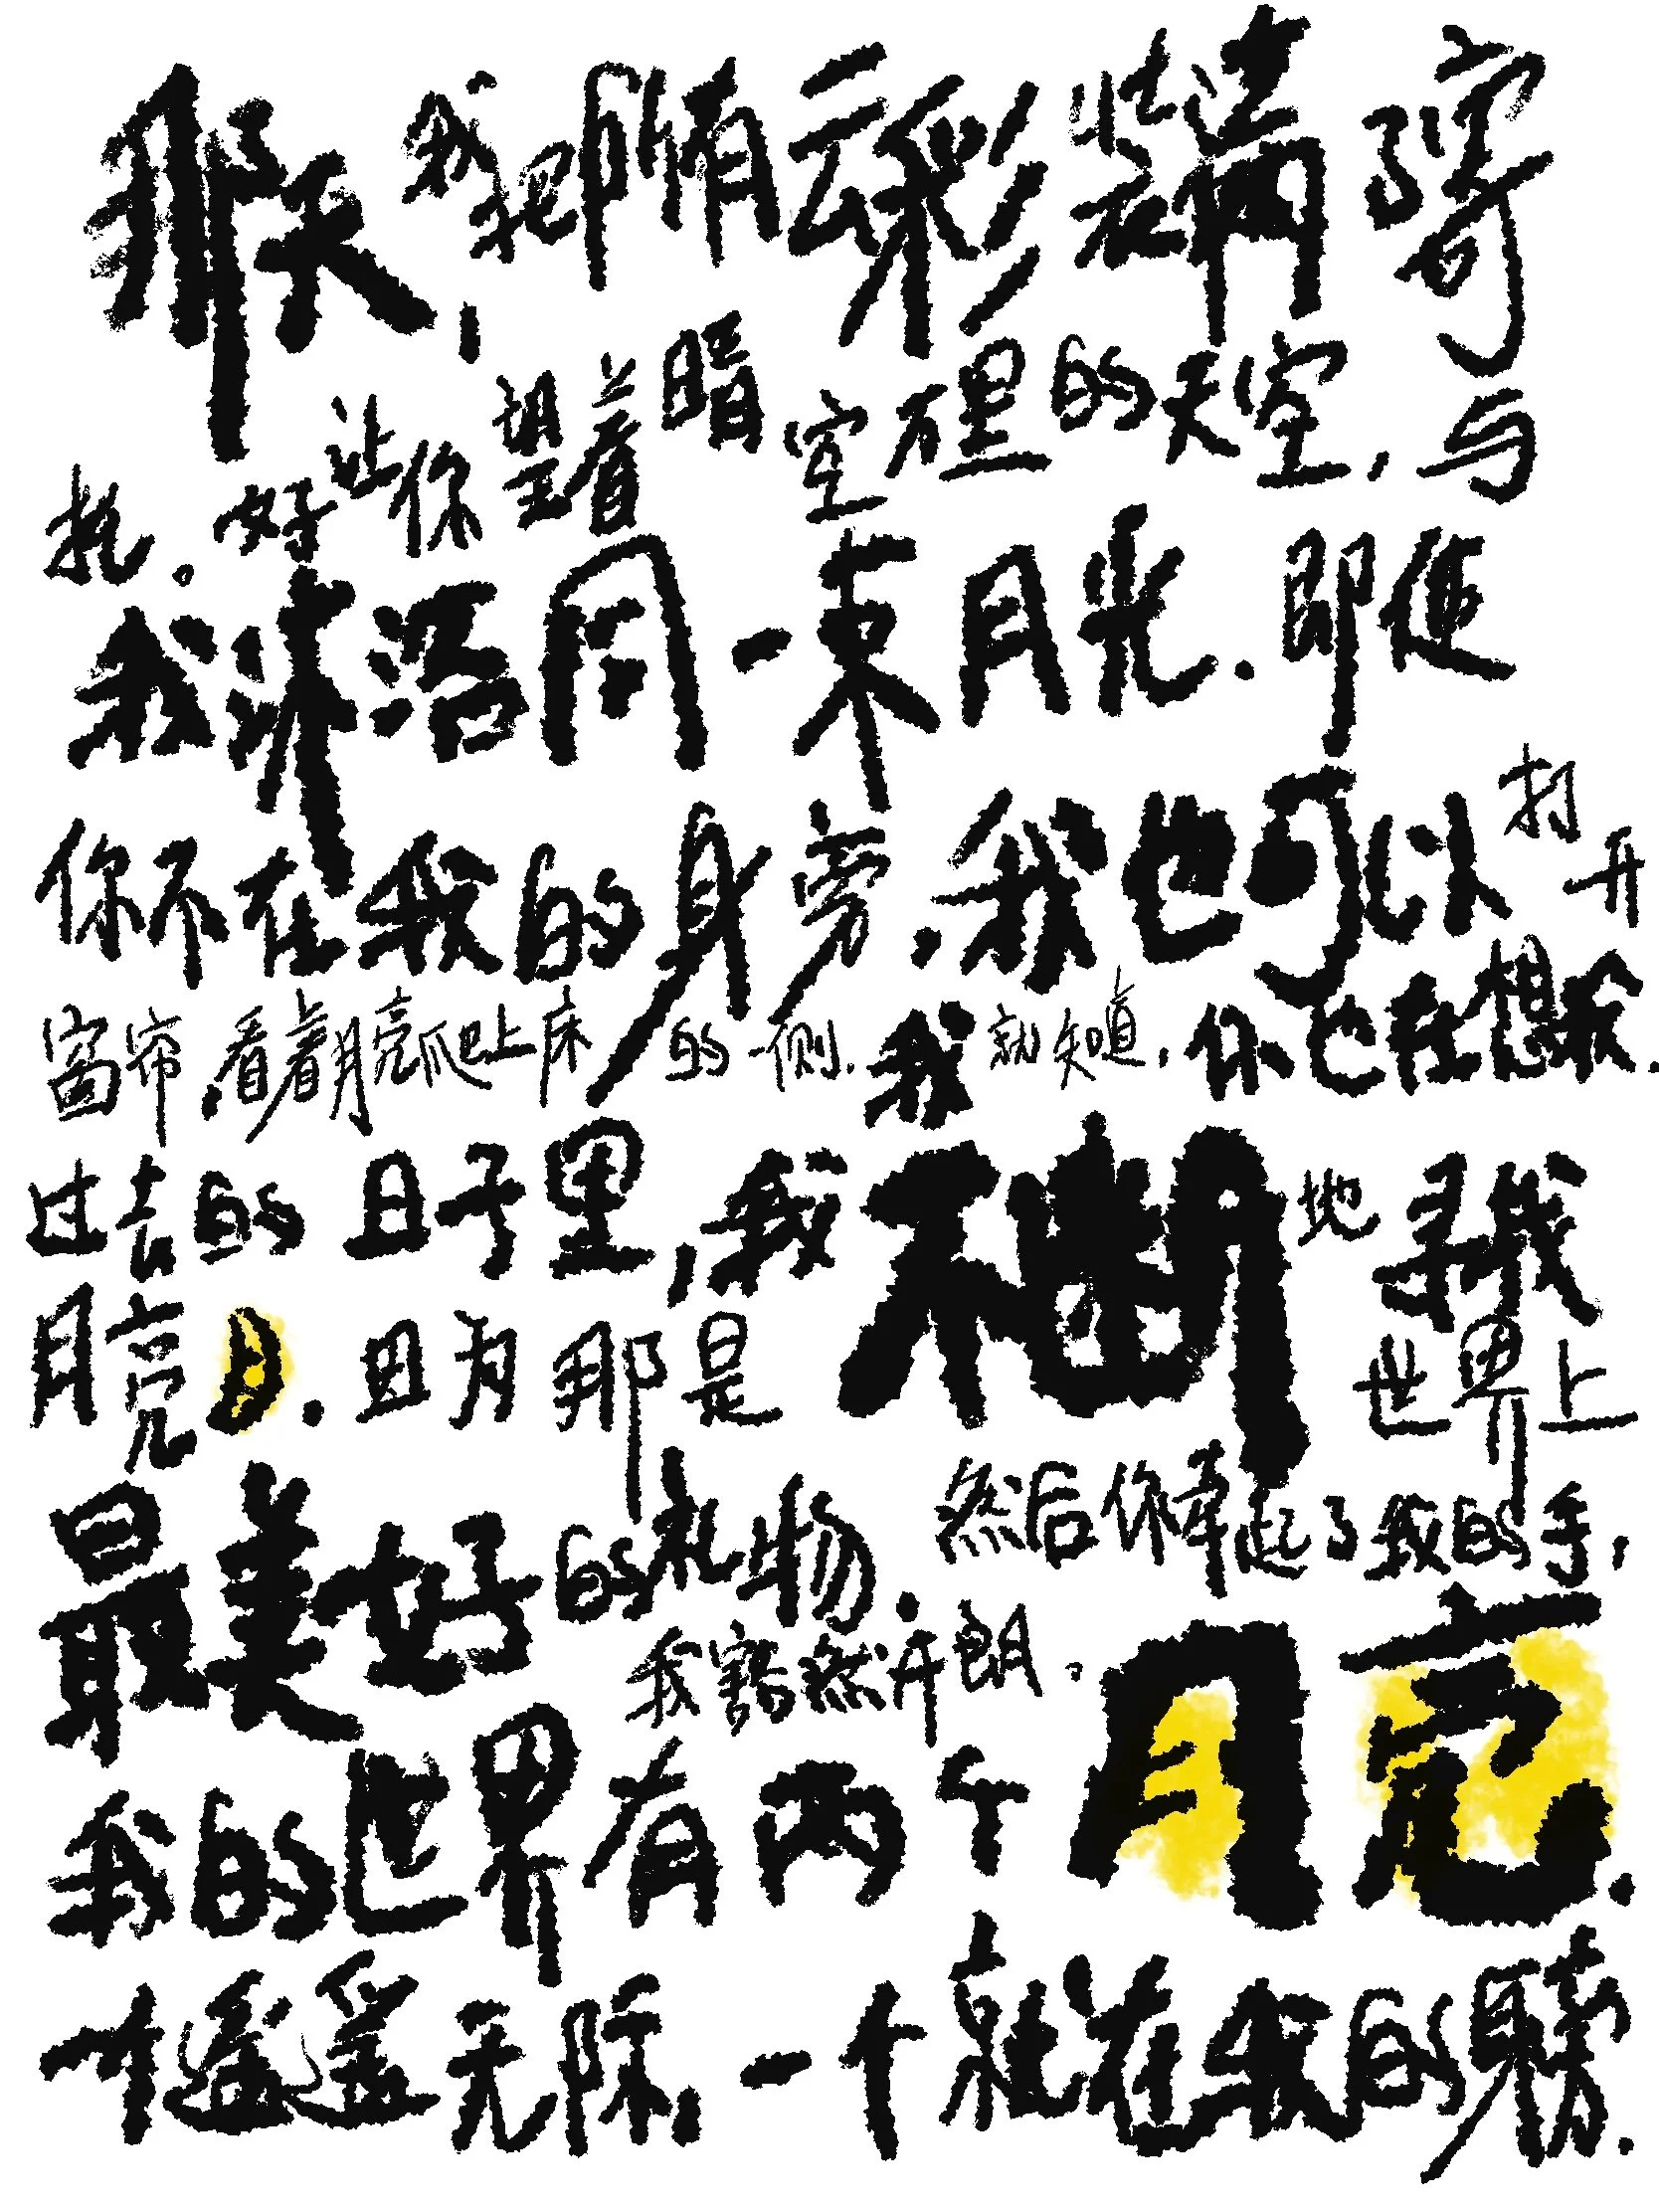 那天,我把所有云彩装满了寄
托。好让你望着暗空万里的天空,与
我沐浴同一束月光.即使
你不在我的身旁,我也可以打开
窗帘,看着月亮爬上床的一侧.我就知道,你也在想我.
过去的日子里,我不断地寻找
月亮.因为那是世界上
最美好的礼物.然后你牵起了我的手,
我豁然开朗。
我的世界有两个月亮.
一个遥遥无际,一个就在我的身旁.